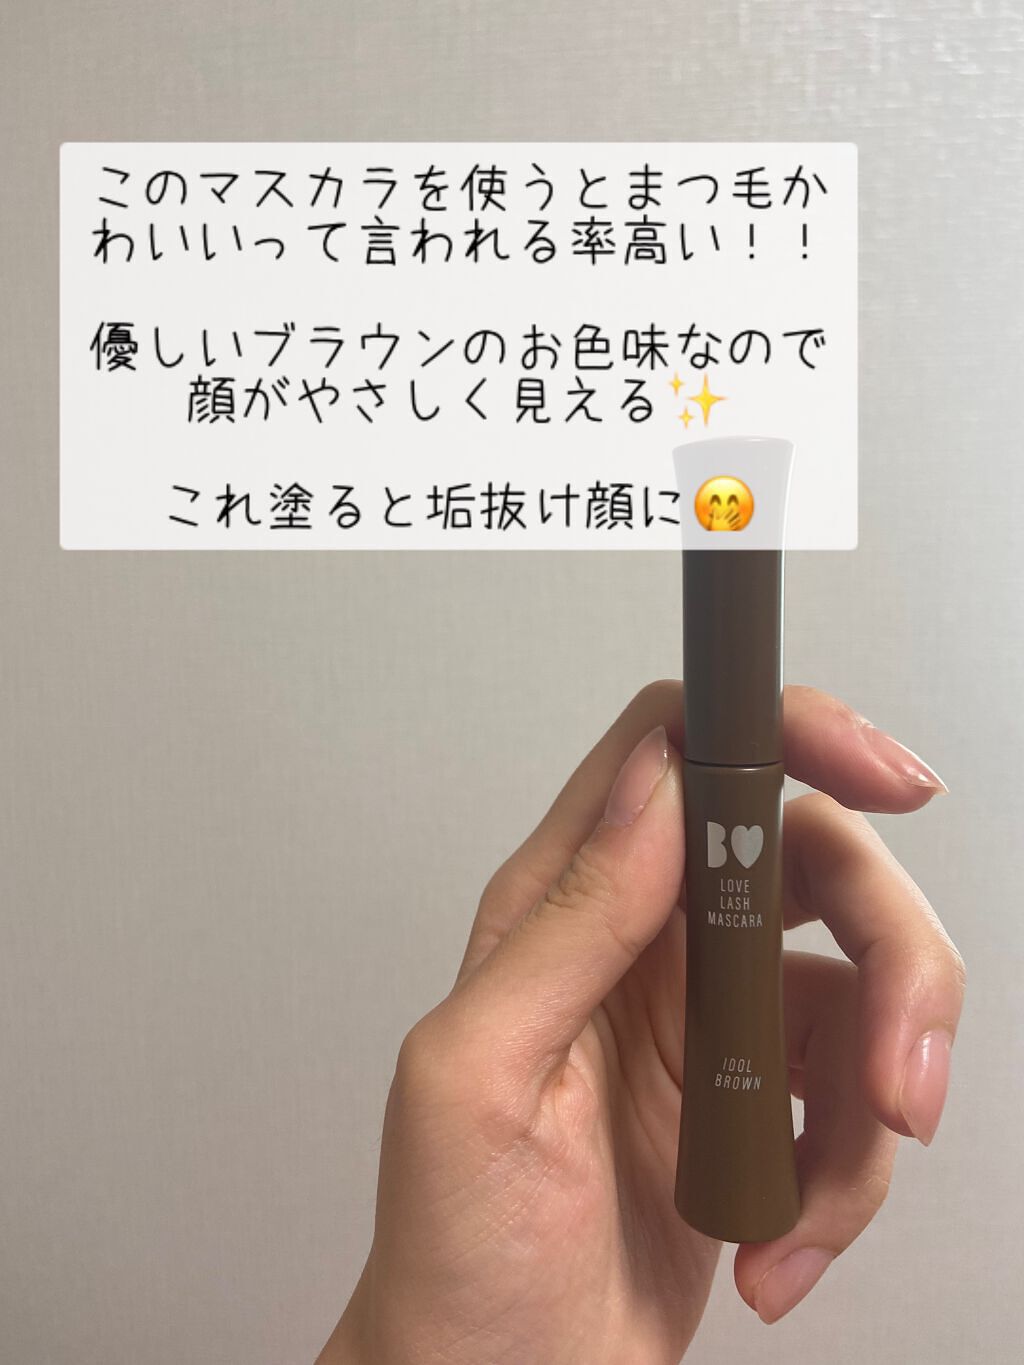 このマスカラを使うとまつ毛か
わいいって言われる率高い！！
優しいブラウンのお色味なので
顔がやさしく見える✨
これ塗ると垢抜け顔に🤭
B♥
LOVE
LASH
MASCARA
IDOL
BROWN